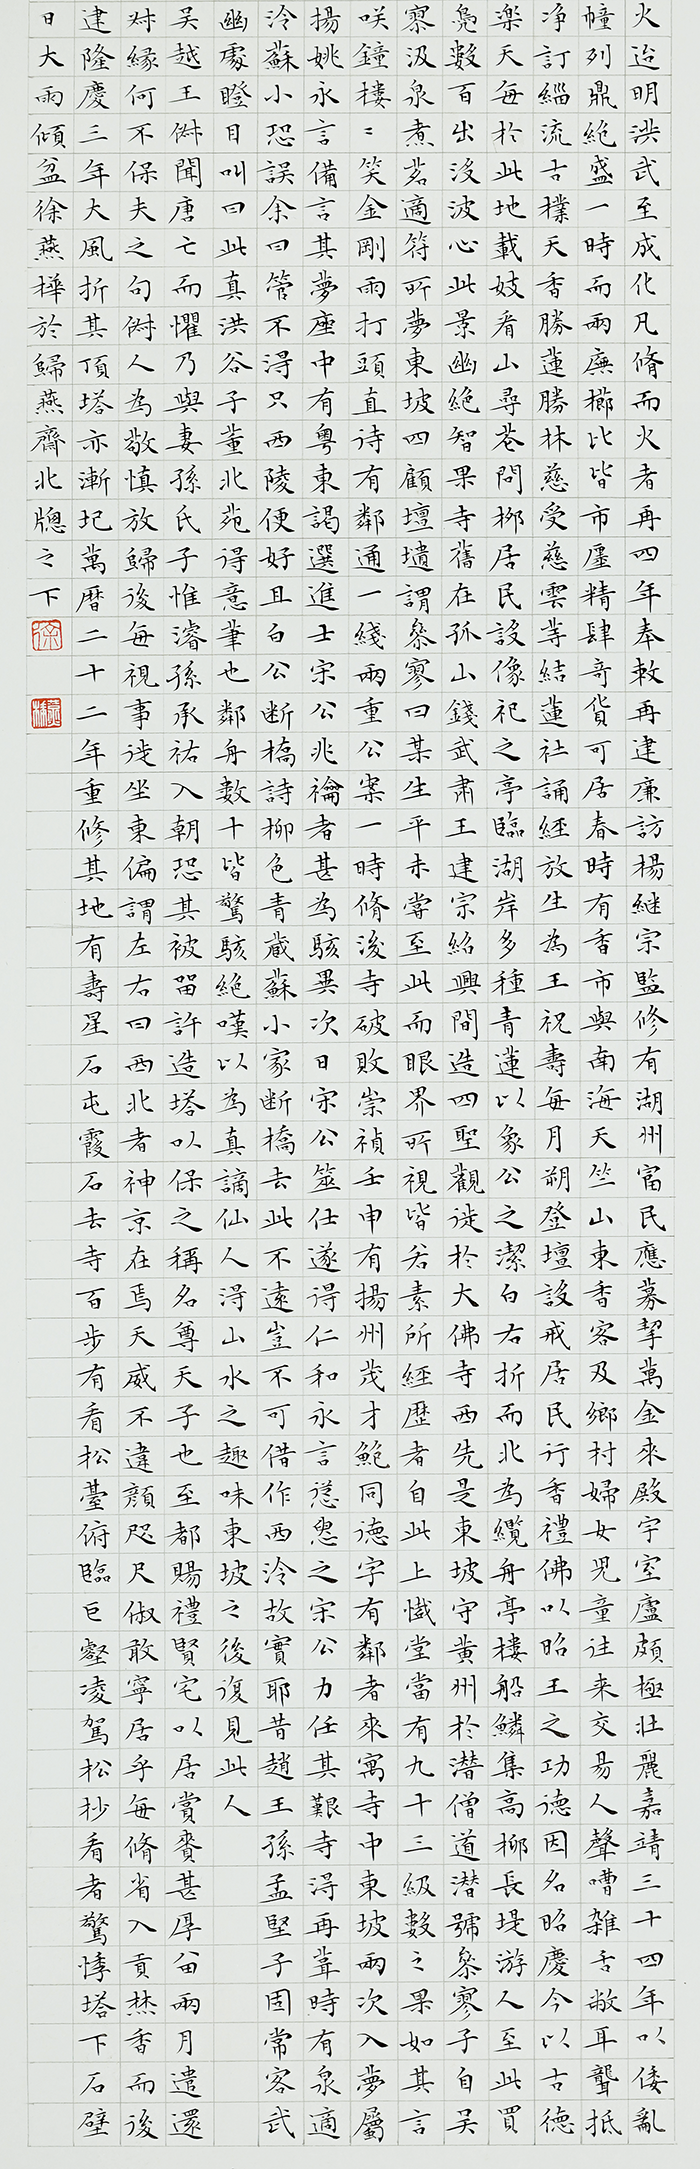 火迨明洪武至成化凡脩而火者再四年奉敕再建廉訪楊継宗監修有湖州富民應募挈萬金來殿宇室廬頗極壯麗嘉靖三十四年以倭亂
幢列鼎絶盛一時而兩廡櫛比皆市廛精肆奇貨可居春時有香市與南海天竺山東香客及鄉村婦女児童往来交易人聲嘈雑舌敝耳聾抵
净訂緇流古樸天香勝蓮勝林慈受慈雲等結蓮社誦經放生為王祝壽每月朔登壇設戒居民行香禮佛以昭王之功德因名昭慶今以古德
楽天每於此地載妓看山尋苍問栁居民設像祀之亭臨湖岸多種青蓮以象公之潔白右折而北為纜舟亭樓船鱗集高栁長堤游人至此買
鳧數百出沒波心此景幽絶智果寺舊在孤山錢武肅王建宋紹興間造四聖觀徙於大佛寺西先是東坡守黄州於潜僧道潜號叅寥子自吴
寮汲泉煮茗適符所夢東坡四顧壇壝謂叅寥曰某生平未嘗至此而眼界所視皆若素所經歴者自此上懺堂當有九十三級數之果如其言
咲鐘樓〻笑金剛雨打頭直待有鄰通一綫兩重公案一時脩後寺破敗崇禎壬申有揚州茂才鮑同德字有鄰者來寓寺中東坡兩次入夢屬
揚姚永言備言其夢座中有粤東謁選進士宋公兆禴者甚為駭異次日宋公筮仕遂得仁和永言慫恿之宋公力任其艱寺得再葺時有泉適
泠蘇小恐誤余曰管不得只西陵便好且白公断橋詩栁色青蔵蘇小家断橋去此不遠豈不可借作西泠故實耶昔趙王孫孟堅子固常客武
幽處瞪目叫曰此真洪谷子董北苑得意筆也鄰舟數十皆驚駭絶嘆以為真謫仙人得山水之趣味東坡之後復見此人
吴越王俶聞唐亡而懼乃與妻孫氏子惟濬孫承祐入朝恐其被留許造塔以保之稱名尊天子也至都賜禮賢宅以居賞賚甚厚留兩月遣還
對縁何不保夫之句俶人為敬慎放歸後每視事徙坐東偏謂左右曰西北者神京在焉天威不違顔咫尺俶敢寧居乎每脩省入貢焚香而後
建隆慶三年大風折其頂塔亦漸圮萬暦二十二年重修其地有壽星石屯霞石去寺百步有看松臺俯臨巨壑凌駕松杪看者驚悸塔下石壁
日大雨傾盆徐燕樺於歸燕齋北牕之下
徐
燕樺